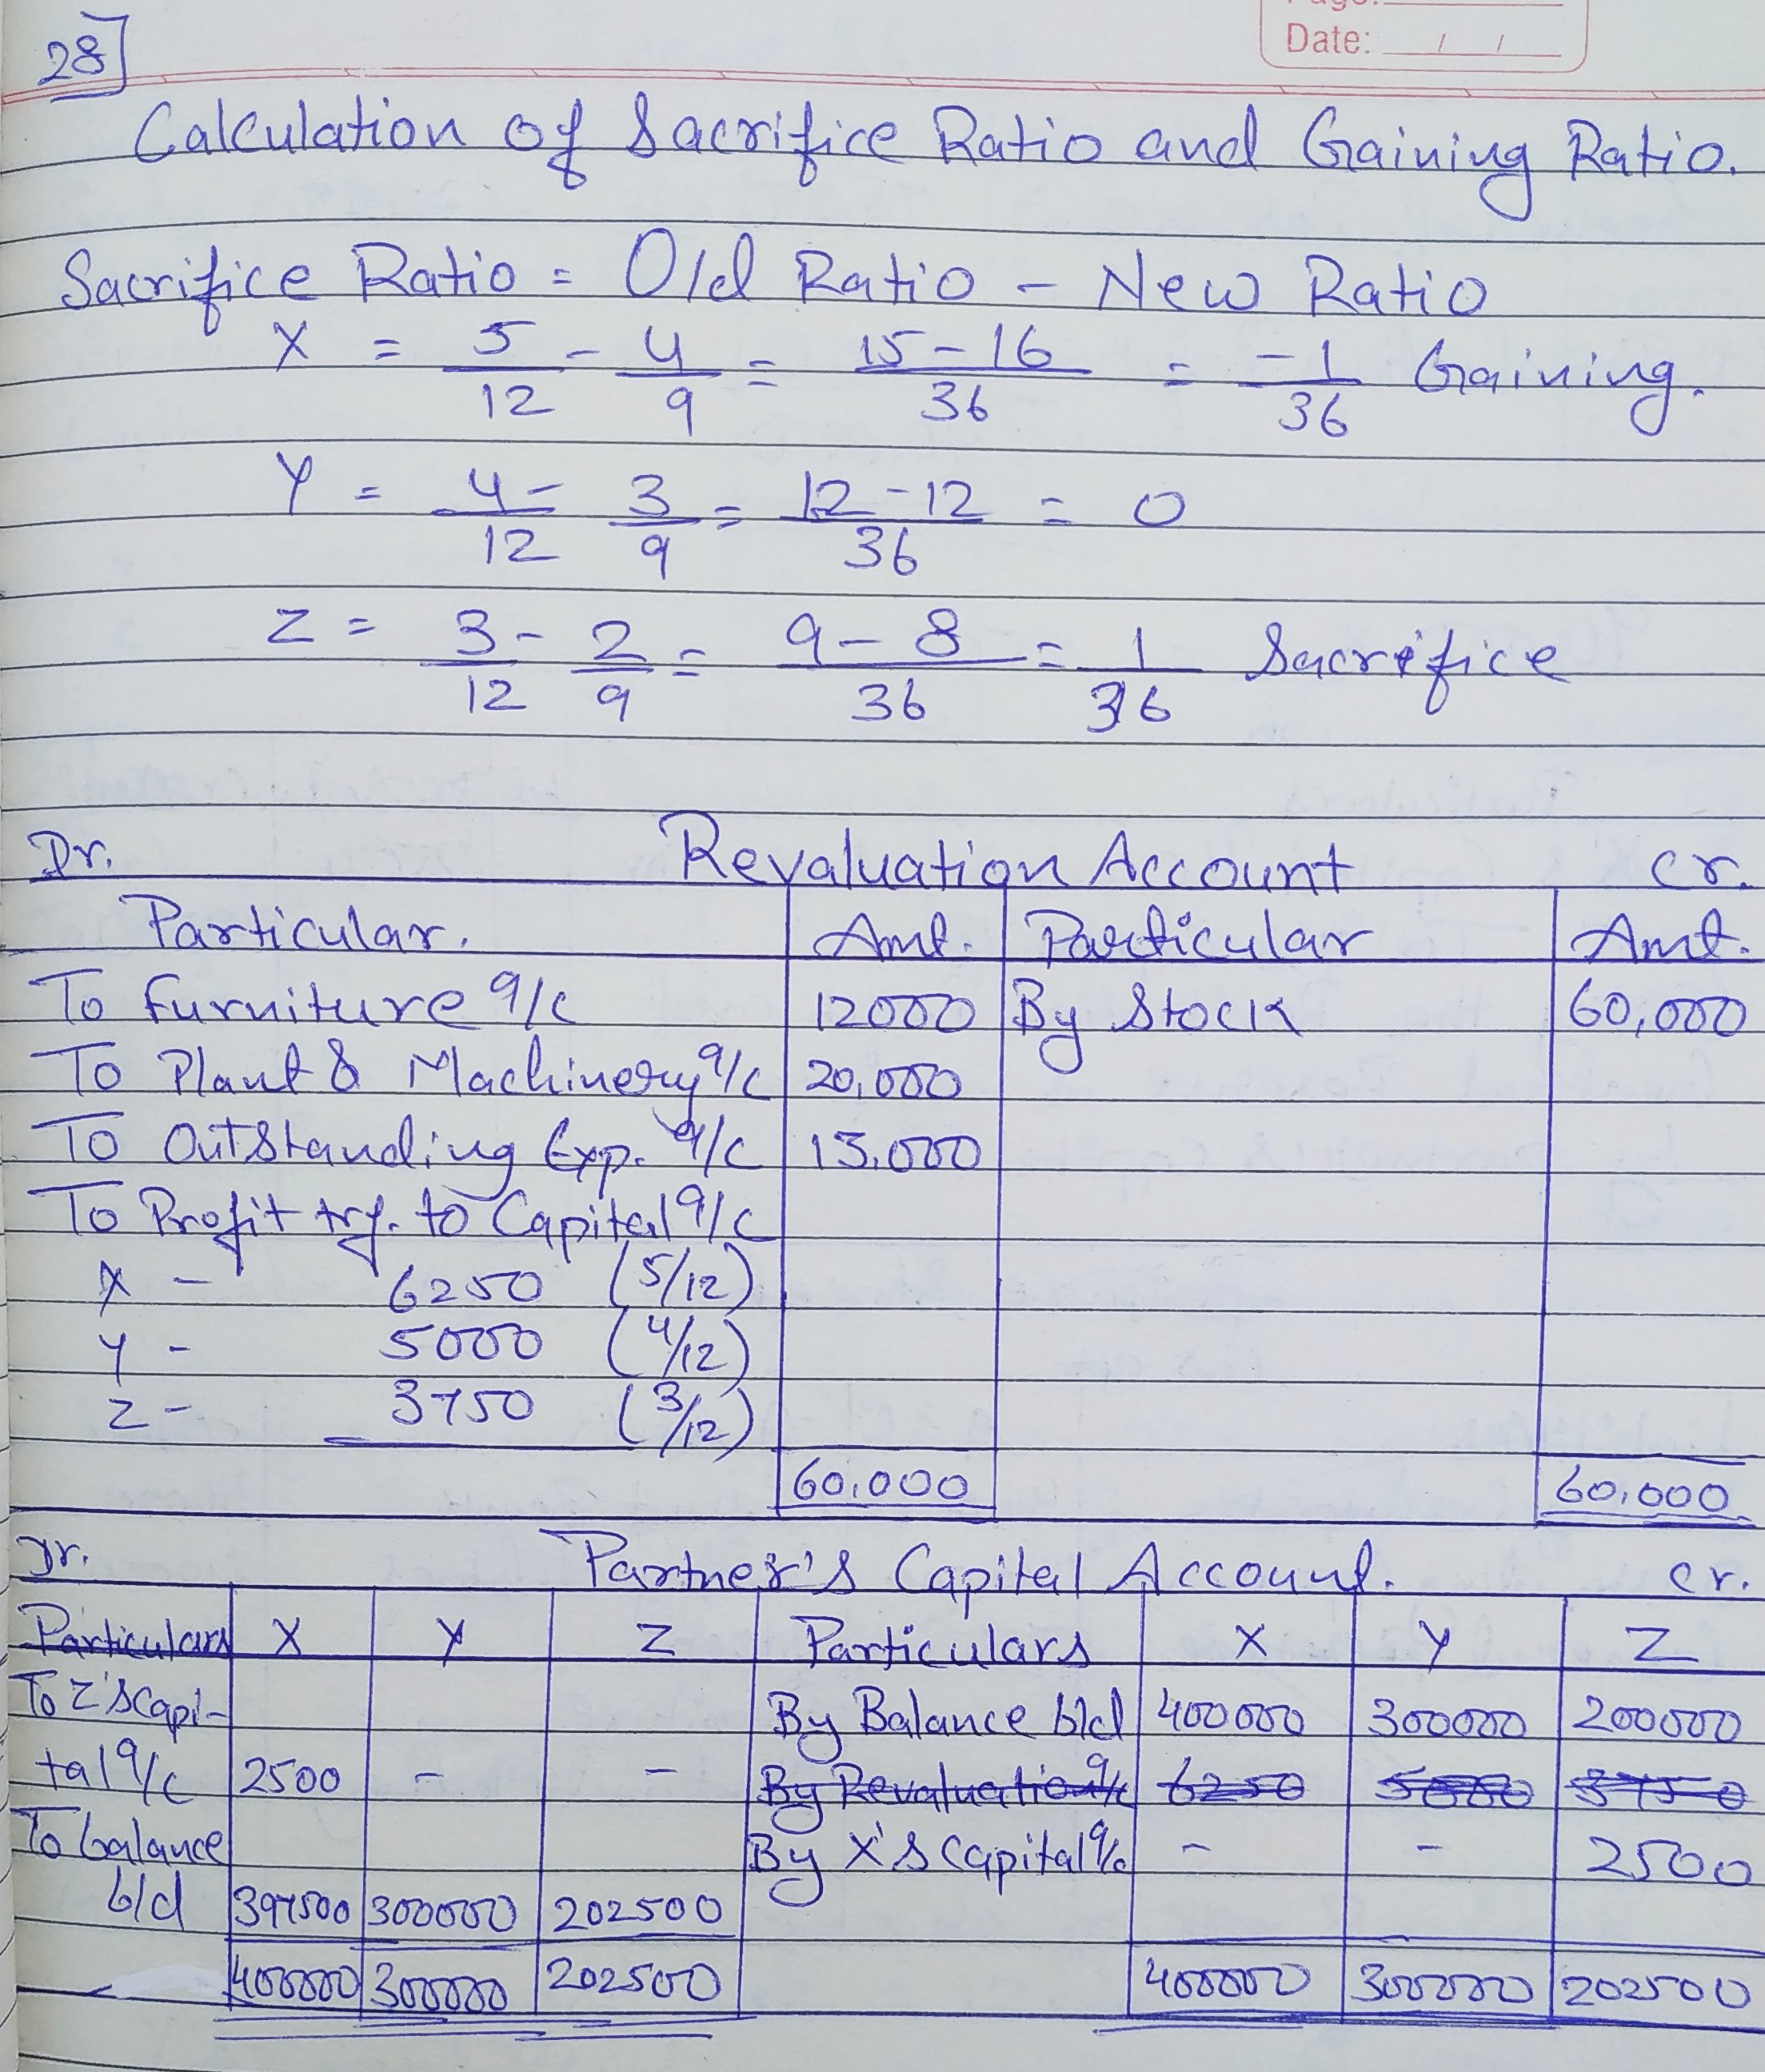 Date: / /
28]
Calculation of Sacrifice Ratio and Gaining Ratio.
Sacrifice Ratio = Old Ratio - New Ratio
X = 5/12 - 4/9 = 15-16/36 = -1/36 Gaining.
Y = 4/12 - 3/9 = 12-12/36 = 0
Z = 3/12 - 2/9 = 9-8/36 = 1/36 Sacrifice
Dr. Revaluation Account Cr.
Particular. Amt. Particular Amt.
To Furniture a/c 12000 By Stock 60,000
To Plant & Machinery a/c 20,000
To Outstanding Exp. a/c 13,000
To Profit trf. to Capital a/c
X - 6250 (5/12)
Y - 5000 (4/12)
Z - 3750 (3/12)
60,000 60,000
Dr. Partner's Capital Account. Cr.
Particulars X Y Z Particulars X Y Z
To Z's Capi- By Balance b/d 400000 300000 200000
tal a/c 2500 - - By Revaluation a/c 6250 5000 3750
To balance By X's Capital a/c - - 2500
b/d 397500 300000 202500
400000 300000 202500 400000 300000 202500